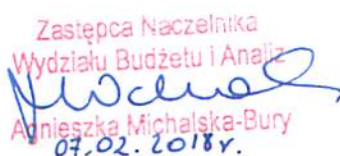 Zastępca Naczelnika
Wydziału Budżetu i Analiz
Agnieszka Michalska-Bury
07.02.2018r.